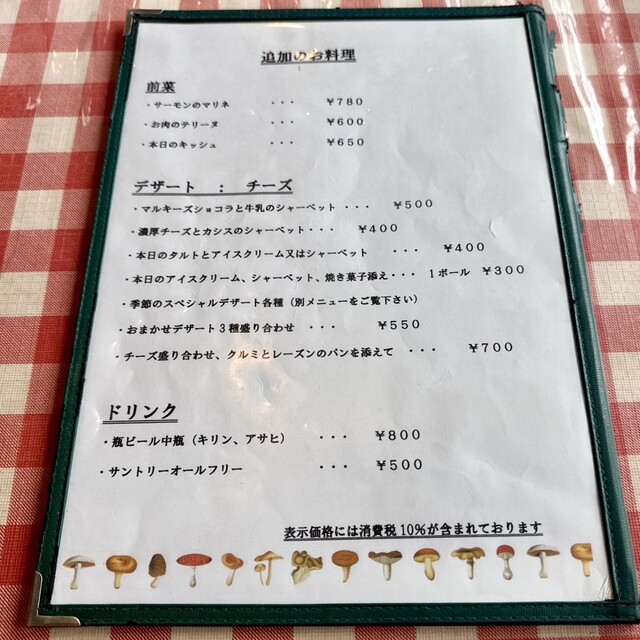 追加のお料理
前菜
・サーモンのマリネ ・・・ ￥780
・お肉のテリーヌ ・・・ ￥600
・本日のキッシュ ・・・ ￥650
デザート ： チーズ
・マルキーズショコラと牛乳のシャーベット ・・・ ￥500
・濃厚チーズとカシスのシャーベット・・・ ￥400
・本日のタルトとアイスクリーム又はシャーベット ・・・ ￥400
・本日のアイスクリーム、シャーベット、焼き菓子添え・・・ １ボール ￥300
・季節のスペシャルデザート各種（別メニューをご覧下さい）
・おまかせデザート３種盛り合わせ ・・・ ￥550
・チーズ盛り合わせ、クルミとレーズンのパンを添えて ・・・ ￥700
ドリンク
・瓶ビール中瓶（キリン、アサヒ） ・・・ ￥800
・サントリーオールフリー ・・・ ￥500
表示価格には消費税10%が含まれております